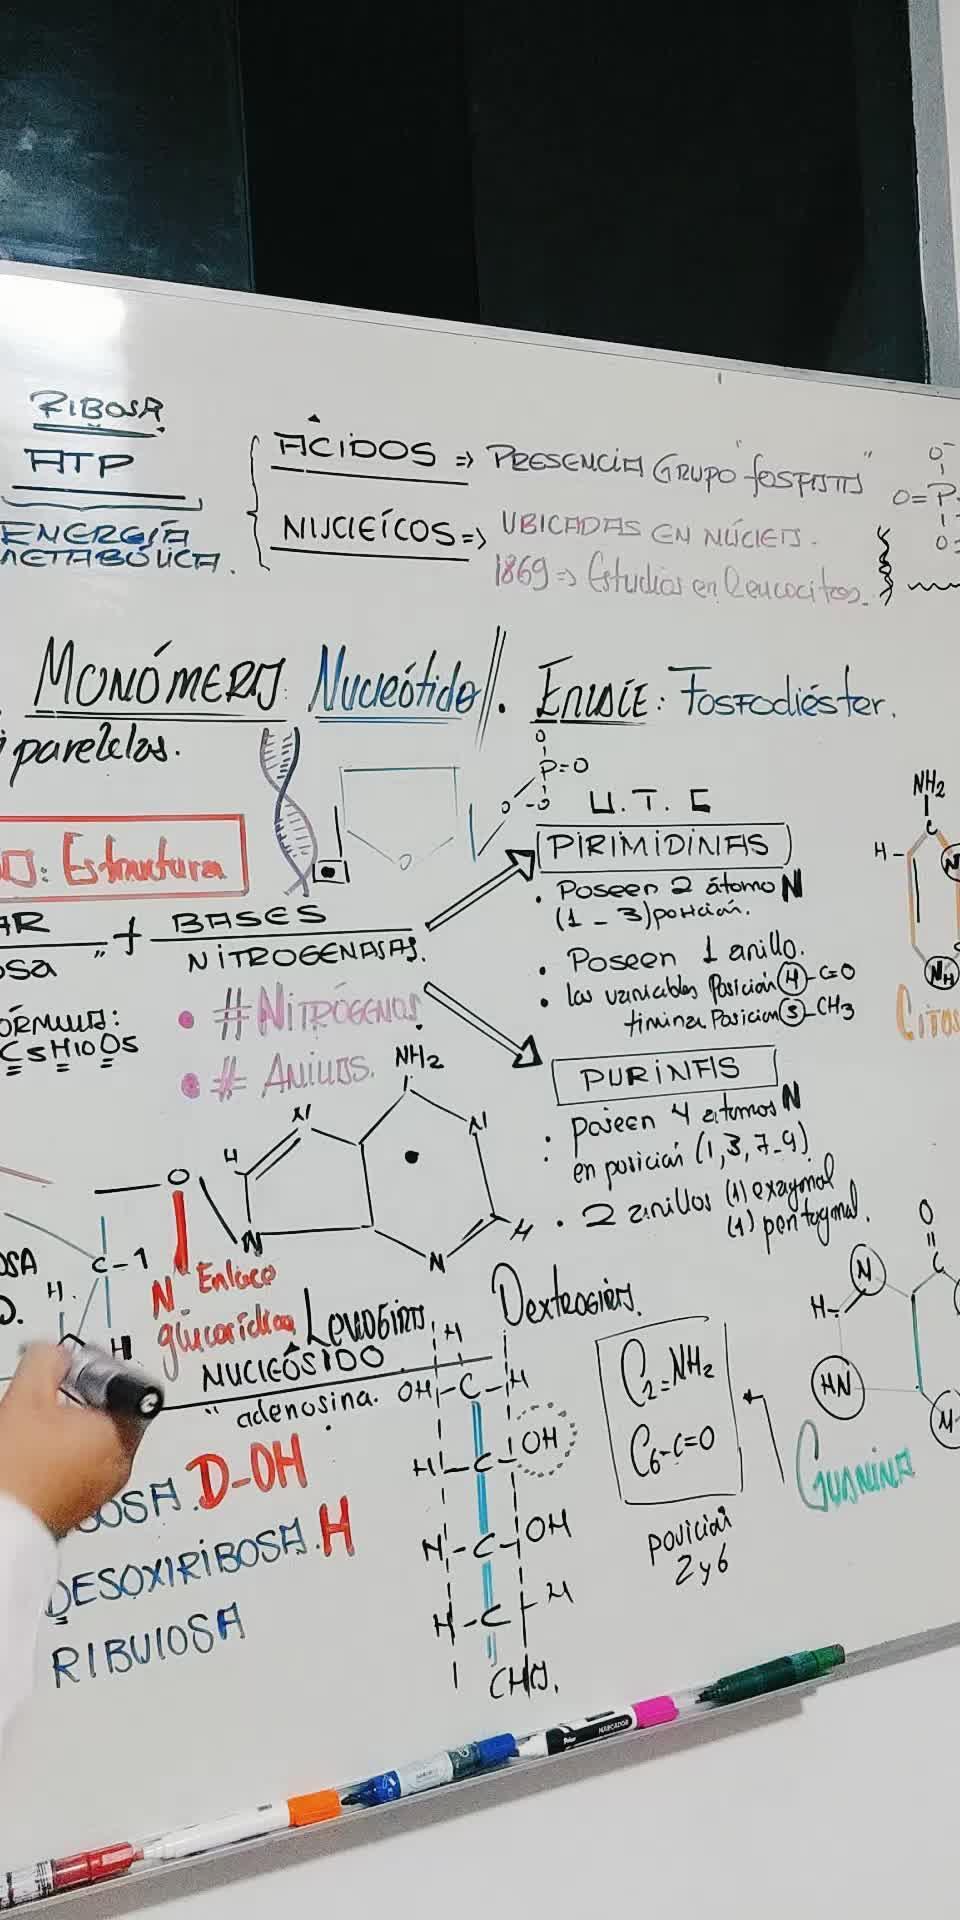 RIBOSA
ATP
ENERGÍA
METABÓLICA.
ÁCIDOS => PRESENCIA GRUPO "fosfato"
NUCLEÍCOS => UBICADAS EN NÚCLEO.
1869 => Estudios en leucocitos.
O-
O=P-
O
MONÓMERO: Nucleótido//. ENLACE: Fosfodiéster.
paralelas.
O
P=O
O -O
O
U. T. C
PIRIMIDINAS
• Poseen 2 átomo N
(1 - 3) posición.
• Poseen 1 anillo.
• las variables Posición 4-C=O
timina Posición 5-CH3
NH2
C
H-
N
NH
CITOS
O: Estructura
AR + BASES
osa" NITROGENADAS.
ÓRMULA:
C5H10O5
• # NITRÓGENOS
• # ANILLOS.
PURINAS
• poseen 4 atomos N
: en posición (1,3,7-9)
• 2 anillos (1) exagonal
(1) pentagonal.
NH2
N
N
H
N
N
H
O
OSA
C-1
H.
O.
H
N Enlace
glucosídico
Levogiro, Dextrogiro.
NUCLEÓSIDO
" adenosina.
H
OH-C-H
H-C-OH
H-C-OH
H-C-H
BOSA. D-OH
DESOXIRIBOSA. H
RIBULOSA
C2=NH2
C6-C=O
posición
2 y 6
O
C
N
H-
HN
N
GUANINA
MARCADOR